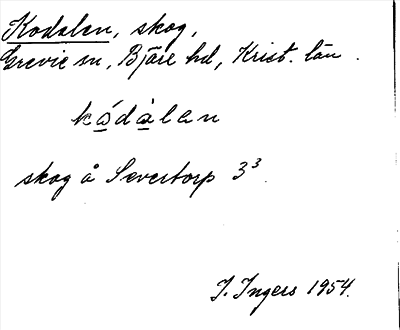 Kodalen, skog,
Grevie sn, Bjäre hd, Krist. län.
kǿdàlan
skog å Severtorp 3³.
I. Ingers 1954.